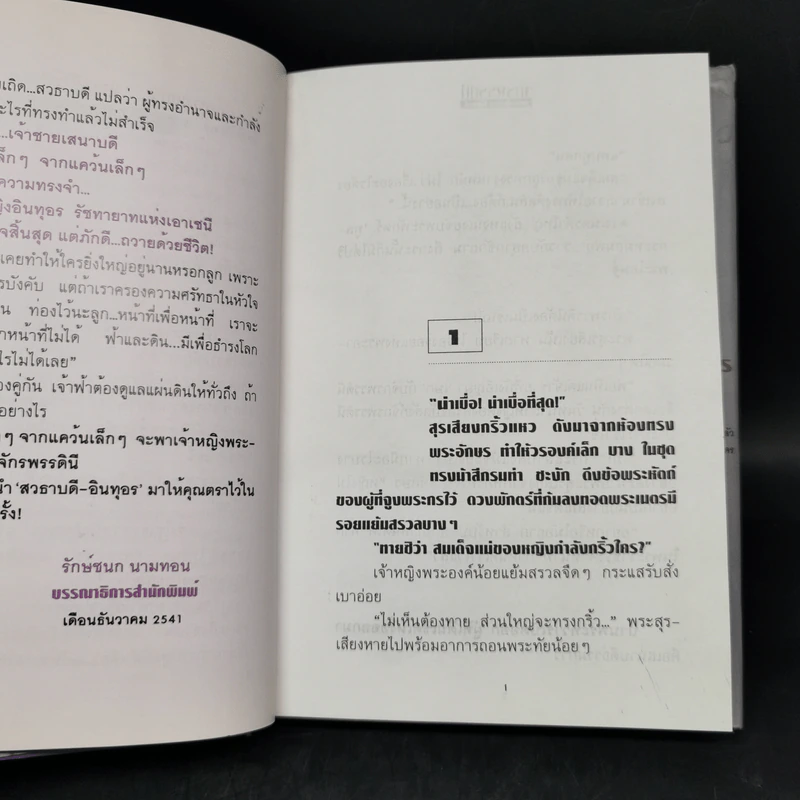 ยเถิด...สวธาบดี แปลว่า ผู้ทรงอำนาจและกำลัง
ะไรที่ทรงทำแล้วไม่สำเร็จ
...เจ้าชายเสนาบดี
ล็กๆ จากแคว้นเล็กๆ
ความทรงจำ...
ญิงอินทุอร รัชทายาทแห่งเอาเซนี
จสิ้นสุด แต่ภักดี...ถวายด้วยชีวิต!
เคยทำให้ใครยิ่งใหญ่อยู่นานหรอกลูก เพราะ
รบังคับ แต่ถ้าเราครองความศรัทธาในหัวใจ
น ท่องไว้นะลูก...หน้าที่เพื่อหน้าที่ เราจะ
กหน้าที่ไม่ได้ ฟ้าและดิน...มีเพื่อธำรงโลก
ไรไม่ได้เลย”
องคู่กัน เจ้าฟ้าต้องดูแลแผ่นดินให้ทั่วถึง ถ้า
อย่างไร
ๆ จากแคว้นเล็กๆ จะพาเจ้าหญิงพระ-
จักรพรรดินี
นำ ‘สวธาบดี-อินทุอร’ มาให้คุณตราไว้ใน
รั้ง!
รักษ์ชนก นามทอน
บรรณาธิการสำนักพิมพ์
เดือนธันวาคม 2541
1
"น่าเบื่อ! น่าเบื่อที่สุด!"
สุรเสียงกริ้วแหว ดังมาจากห้องทรง
พระอักษร ทำให้วรองค์เล็ก บาง ในชุด
ทรงม้าสีกรมท่า ชะงัก ดึงข้อพระหัตถ์
ของผู้ที่จูงพระกรไว้ ดวงพักตร์ที่ก้มลงทอดพระเนตรมี
รอยแย้มสรวลบางๆ
"ทายซิว่า สมเด็จแม่ของหญิงกำลังกริ้วใคร?"
เจ้าหญิงพระองค์น้อยแย้มสรวลจืดๆ กระแสรับสั่ง
เบาอ่อย
“ไม่เห็นต้องทาย ส่วนใหญ่จะทรงกริ้ว...” พระสุร-
เสียงหายไปพร้อมอาการถอนพระทัยน้อยๆ
1